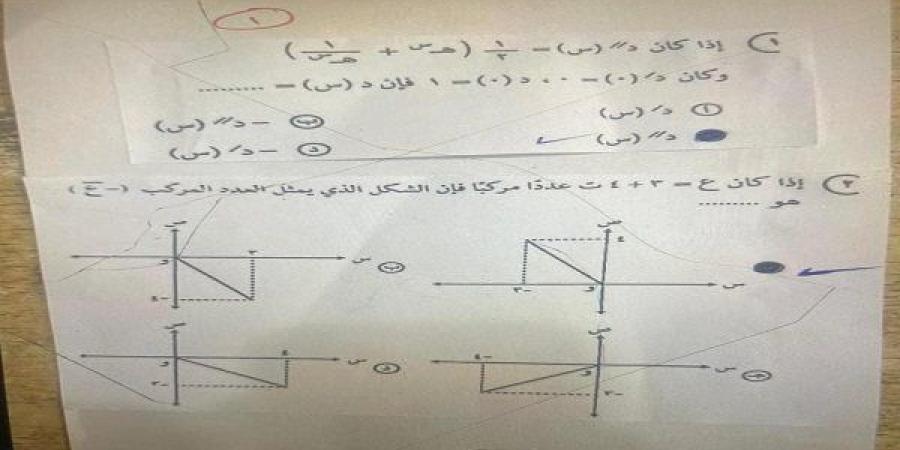 ١
١ إذا كان د//(س) = ١/٢ (هـس + ١/هـس)
وكان د/(٠) = ٠ ، د(٠) = ١ فإن د (س) = .........
أ د/(س)
ب - د//(س)
د//(س)
د - د/(س)
٢ إذا كان ع = ٣ + ٤ ت عددًا مركبًا فإن الشكل الذي يمثل العدد المركب (-ع̅)
هو .........
ص ٤ ٣- و س
ب ص ٣ و س ٤-
جـ ص ٤- و س ٣-
د ص ٤ و س ٣-